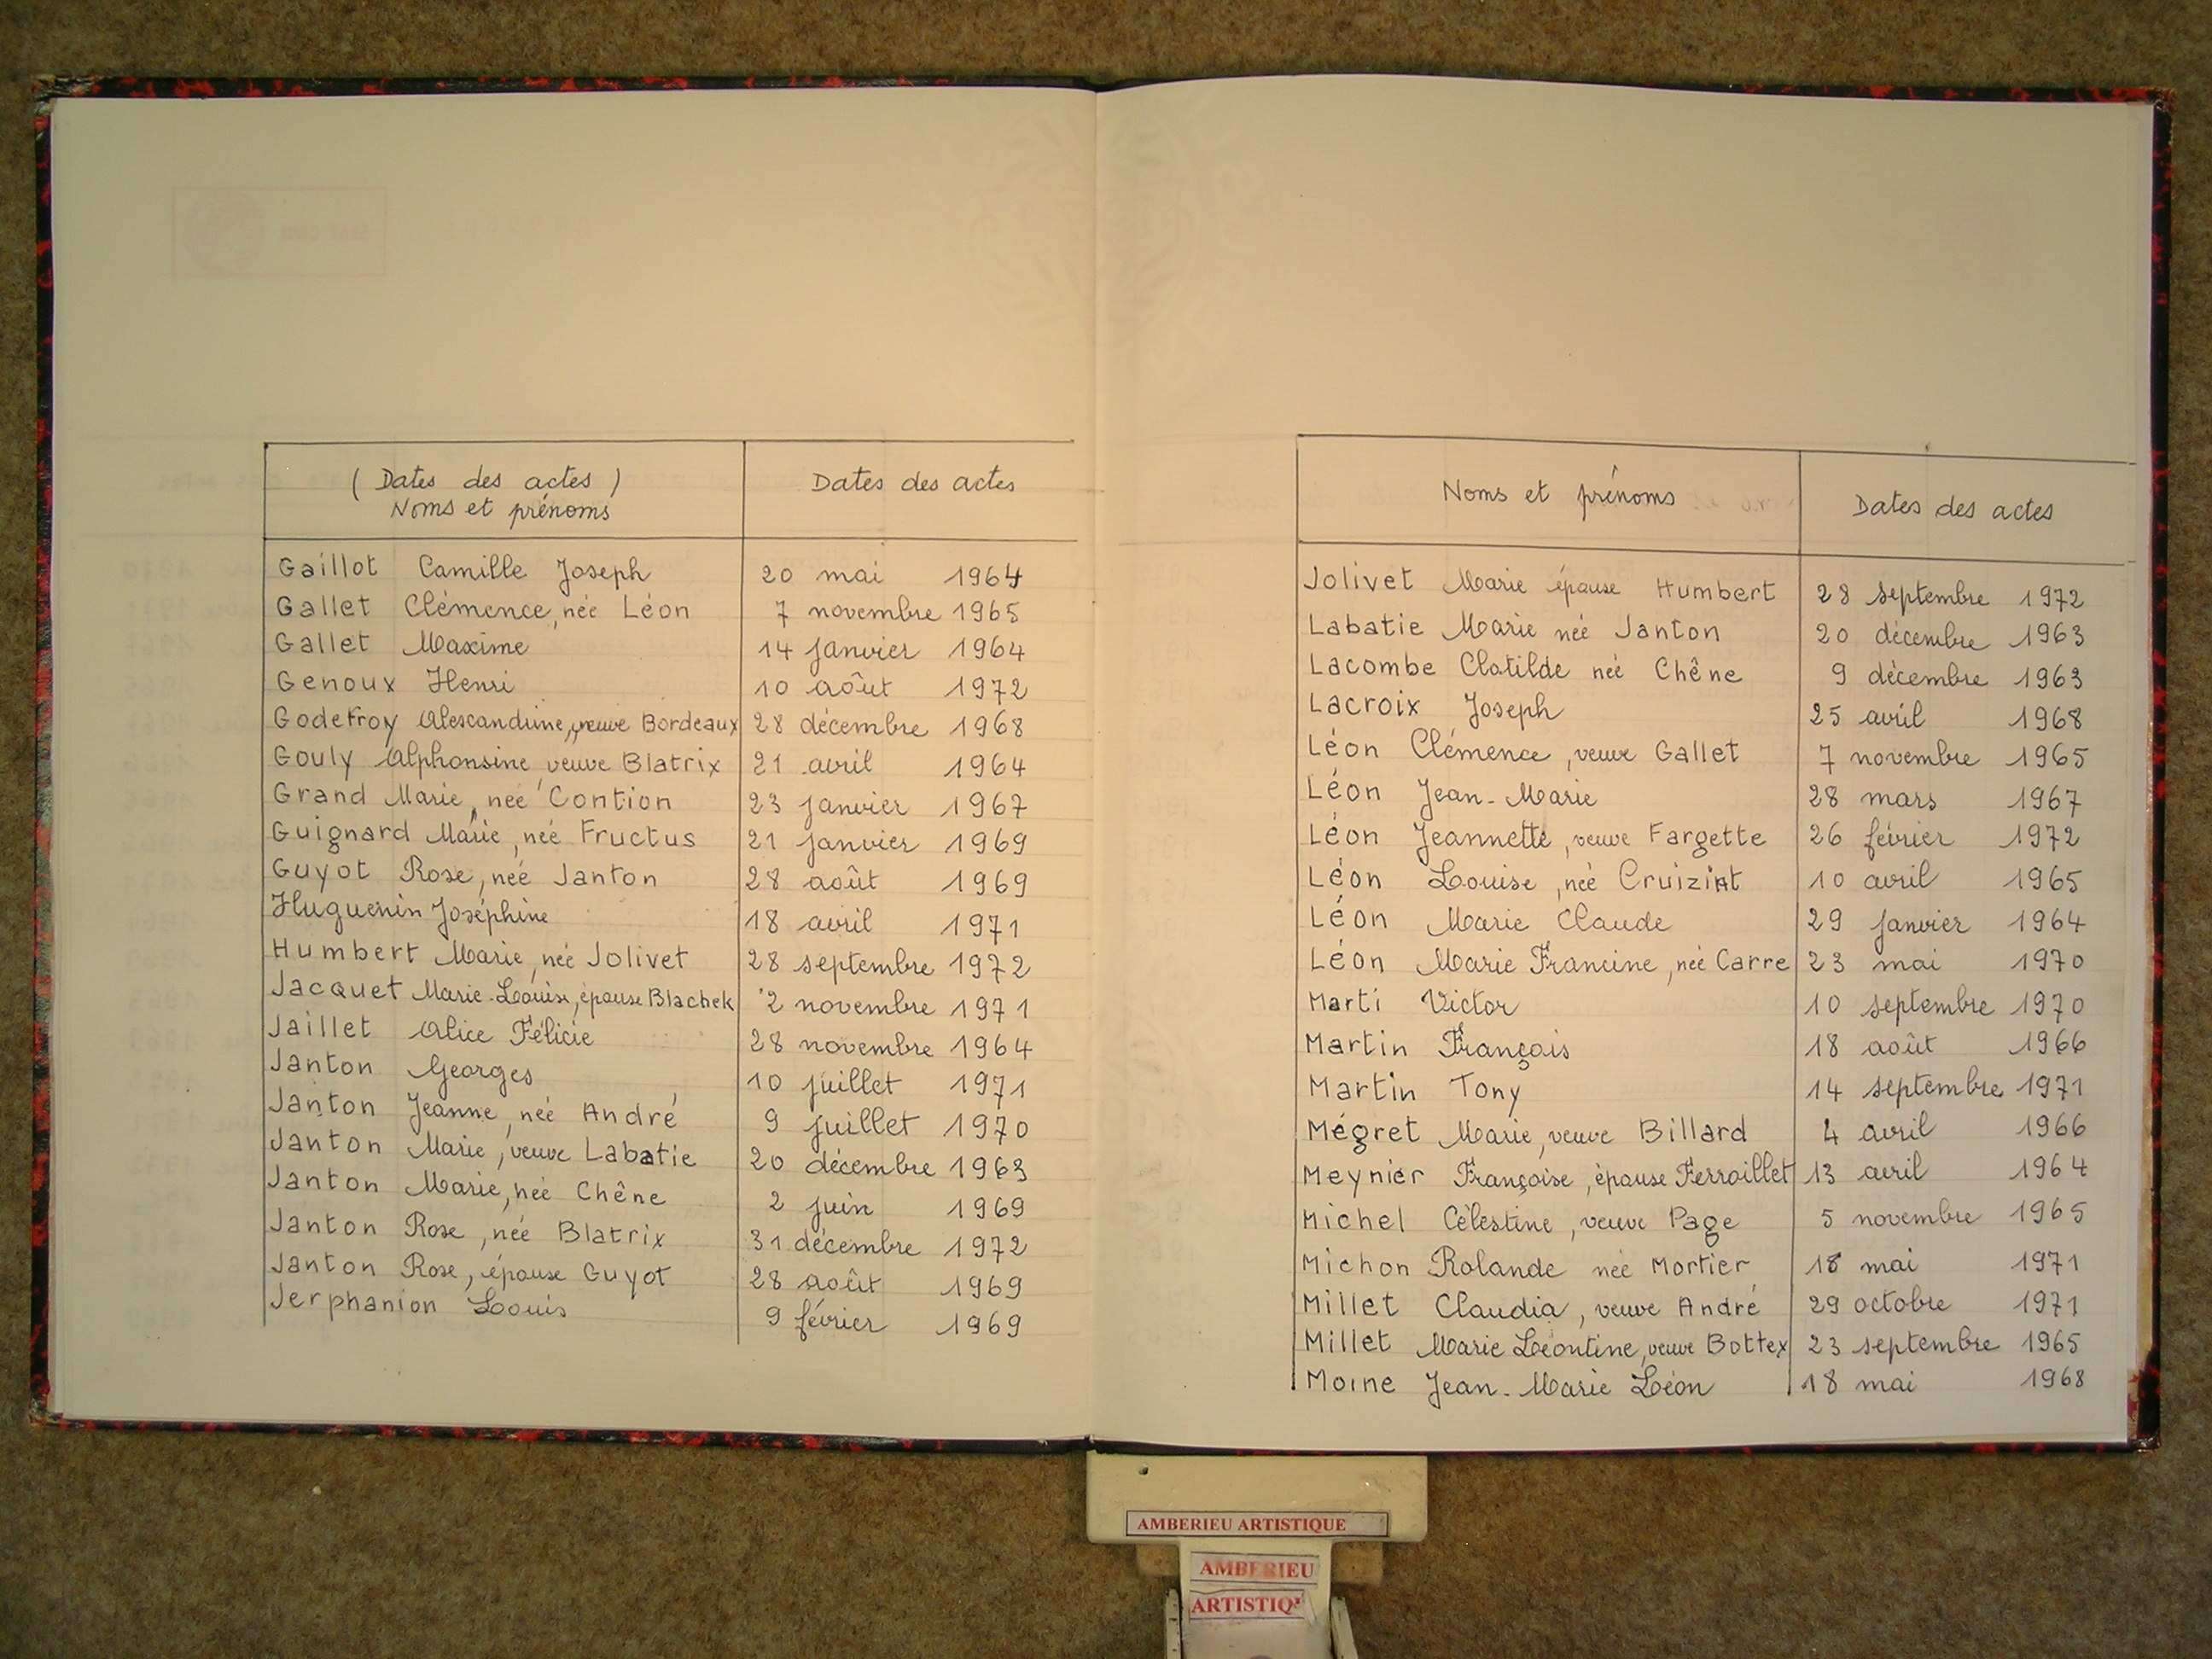 ( Dates des actes )
Noms et prénoms
Dates des actes
Gaillot Camille Joseph 20 mai 1964
Gallet Clémence, née Léon 7 novembre 1965
Gallet Maxime 14 janvier 1964
Genoux Henri 10 août 1972
Godefroy Alexandrine, veuve Bordeaux 28 décembre 1968
Gouly Alphonsine, veuve Blatrix 21 avril 1964
Grand Marie, née Contion 23 janvier 1967
Guignard Marie, née Fructus 21 janvier 1969
Guyot Rose, née Janton 28 août 1969
Huguenin Joséphine 18 avril 1971
Humbert Marie, née Jolivet 28 septembre 1972
Jacquet Marie-Louise, épouse Blachek 2 novembre 1971
Jaillet Alice Félicie 28 novembre 1964
Janton Georges 10 juillet 1971
Janton Jeanne, née André 9 juillet 1970
Janton Marie, veuve Labatie 20 décembre 1963
Janton Marie, née Chêne 2 juin 1969
Janton Rose, née Blatrix 31 décembre 1972
Janton Rose, épouse Guyot 28 août 1969
Jerphanion Louis 9 février 1969
Noms et prénoms
Dates des actes
Jolivet Marie épouse Humbert 28 septembre 1972
Labatie Marie née Janton 20 décembre 1963
Lacombe Clotilde née Chêne 9 décembre 1963
Lacroix Joseph 25 avril 1968
Léon Clémence, veuve Gallet 7 novembre 1965
Léon Jean-Marie 28 mars 1967
Léon Jeannette, veuve Fargette 26 février 1972
Léon Louise, née Cruiziat 10 avril 1965
Léon Marie Claude 29 janvier 1964
Léon Marie Francine, née Carre 23 mai 1970
Marti Victor 10 septembre 1970
Martin François 18 août 1966
Martin Tony 14 septembre 1971
Mégret Marie, veuve Billard 4 avril 1966
Meynier Françoise, épouse Ferroillet 13 avril 1964
Michel Célestine, veuve Page 5 novembre 1965
Michon Rolande née Mortier 18 mai 1971
Millet Claudia, veuve André 29 octobre 1971
Millet Marie Léontine, veuve Bottex 23 septembre 1965
Moine Jean-Marie Léon 18 mai 1968
AMBERIEU ARTISTIQUE
AMBERIEU
ARTISTIQ